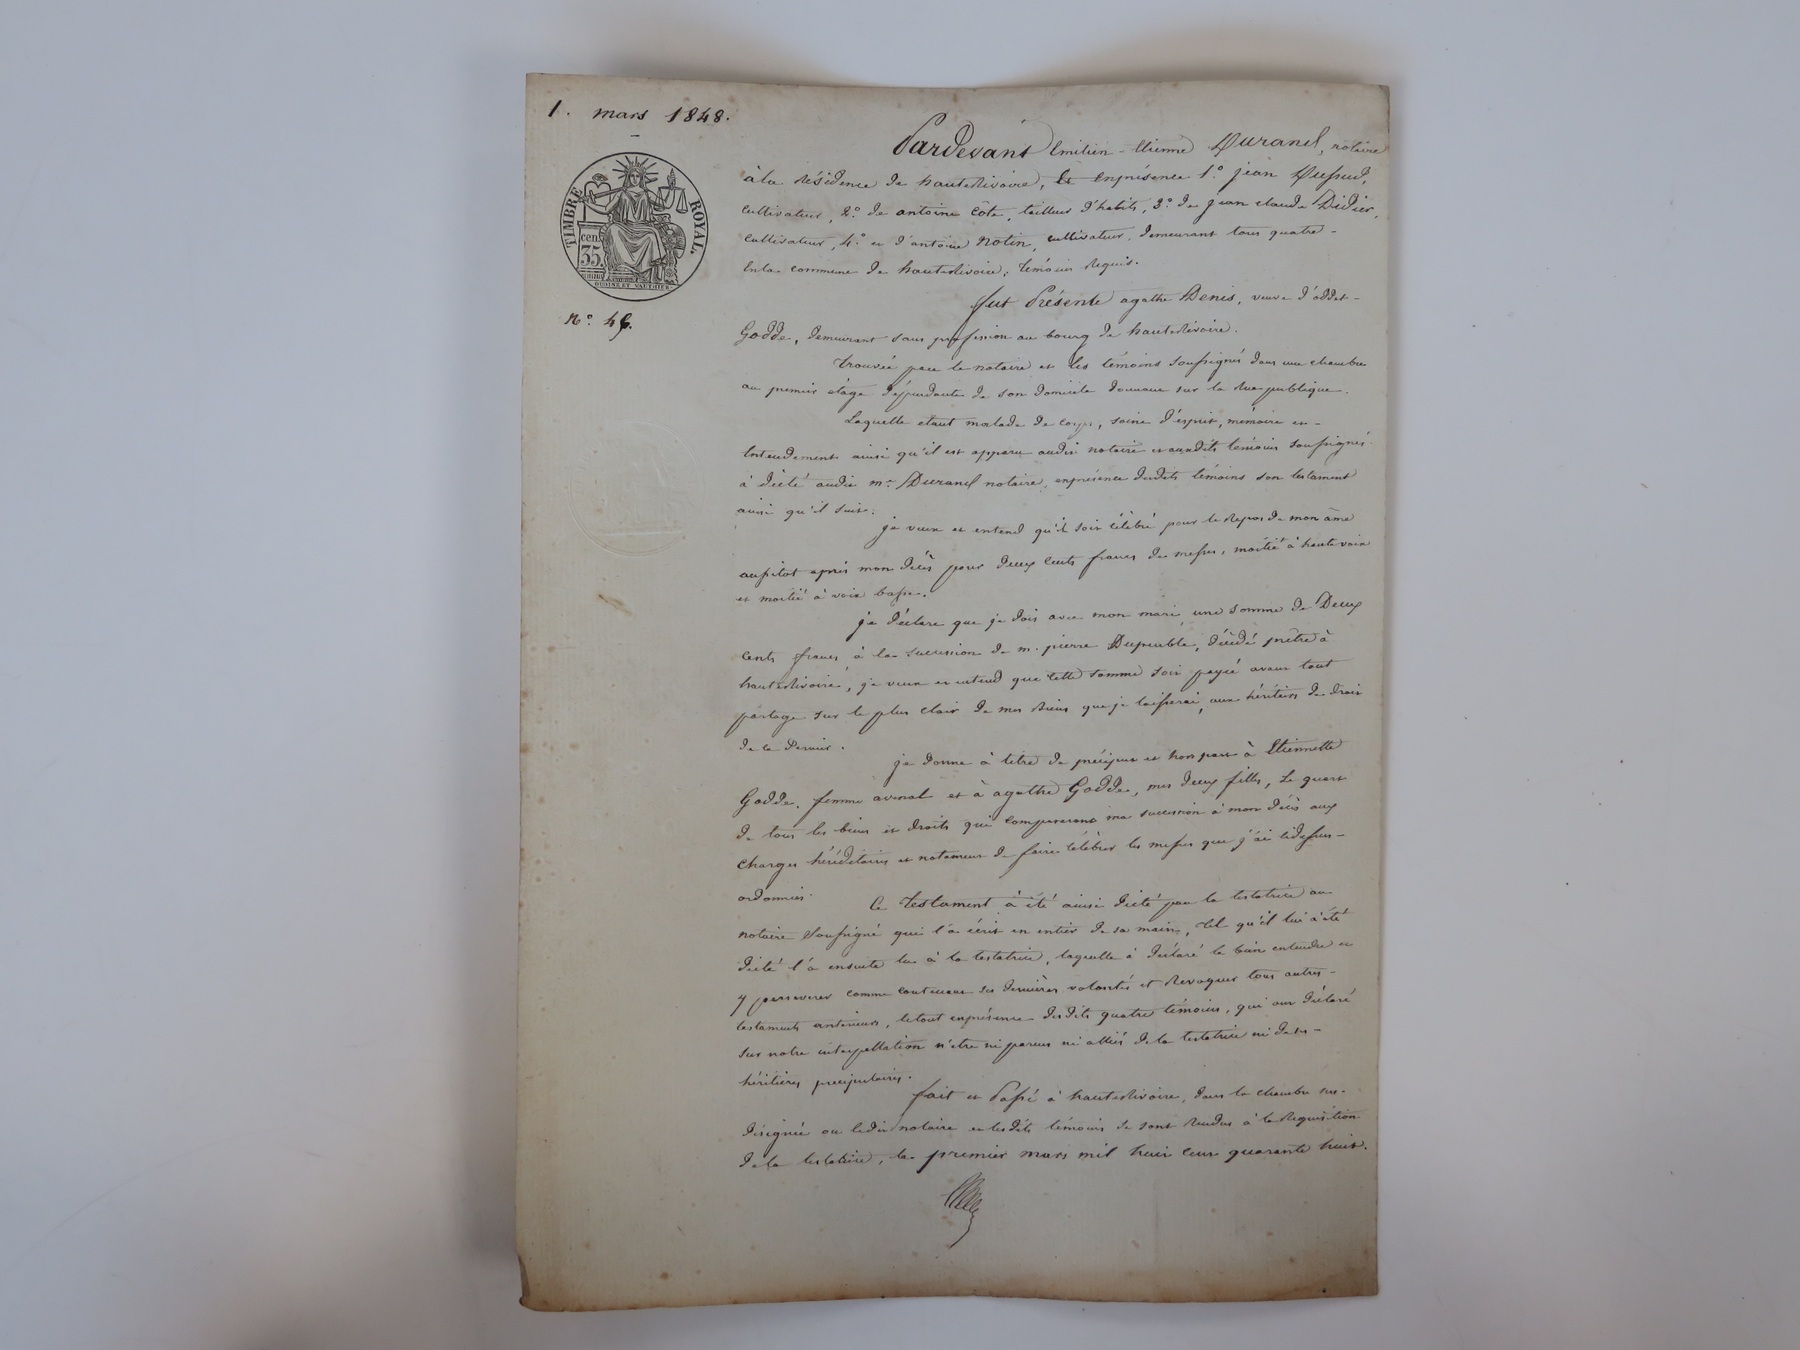 1. mars 1848.
TIMBRE ROYAL.
cen.
35.
OUDINE ET VAUTHIER
N.° 45.
Pardevant Emilien-Etienne Durand, notaire
à la résidence de hauterivoire, Et enprésence 1.° jean
cultivateur, 2.° de antoine Côte, tailleur d'habits, 3.° de jean claude Didier,
cultivateur, 4.° et d'antoine Notin, cultivateur, demeurant tous quatre -
En la commune de hauterivoire, témoins requis.
fut Présente agathe Denis, veuve d'
Godde, demeurant sans profession au bourg de hauterivoire.
trouvée par le notaire et les témoins soussignés dans une chambre
au premier étage dépendante de son domicile donnant sur la rue publique.
Laquelle étant malade de corps, saine d'esprit, mémoire et -
Entendement ainsi qu'il est apparu audit notaire et auxdits témoins soussignés
à dicté audit m.e Durand notaire, enprésence desdits témoins son testament
ainsi qu'il suit:
je veux et entend qu'il soit célébré pour le repos de mon âme
aussitot après mon décès pour deux cents francs de messes, moitié à haute voix
et moitié à voix basse.
je déclare que je dois avec mon mari une somme de Deux
Cents francs, à la succession de m. pierre Dupeuble, décédé prêtre à
hauterivoire, je veux et entend que cette somme soit payée avant tout
partage sur le plus clair de mes biens que je laisserai, aux héritiers de droit
de ce dernier.
je donne à titre de préciput et hors part à Etiennette
Godde, femme avenal et à agathe Godde, mes deux filles, Le quart
de tous les biens et droits qui composeront ma succession à mon décès aux
charges héréditaires et notament de faire célébrer les messes que j'ai cidessus -
ordonnées.
Ce testament à été ainsi dicté par la testatrice au
notaire soussigné qui l'a écrit en entier de sa main, tel qu'il lui à été
dicté l'à ensuite lu à la testatrice, laquelle à déclaré le bien entendre et
y perseverer comme contenant ses dernières volontés et Revoquer tous autres -
testaments antérieurs, le tout enprésence desdits quatre témoins, qui ont déclaré
sur notre interpellation n'etre ni parens ni alliés de la testatrice ni de ses -
héritières preciputaires.
fait et Passé à hauterivoire, dans la chambre sus-
désignée ou ledit notaire et lesdits témoins se sont rendus à la Requisition
de la testatrice, le premier mars mil huit cent quarante huit.